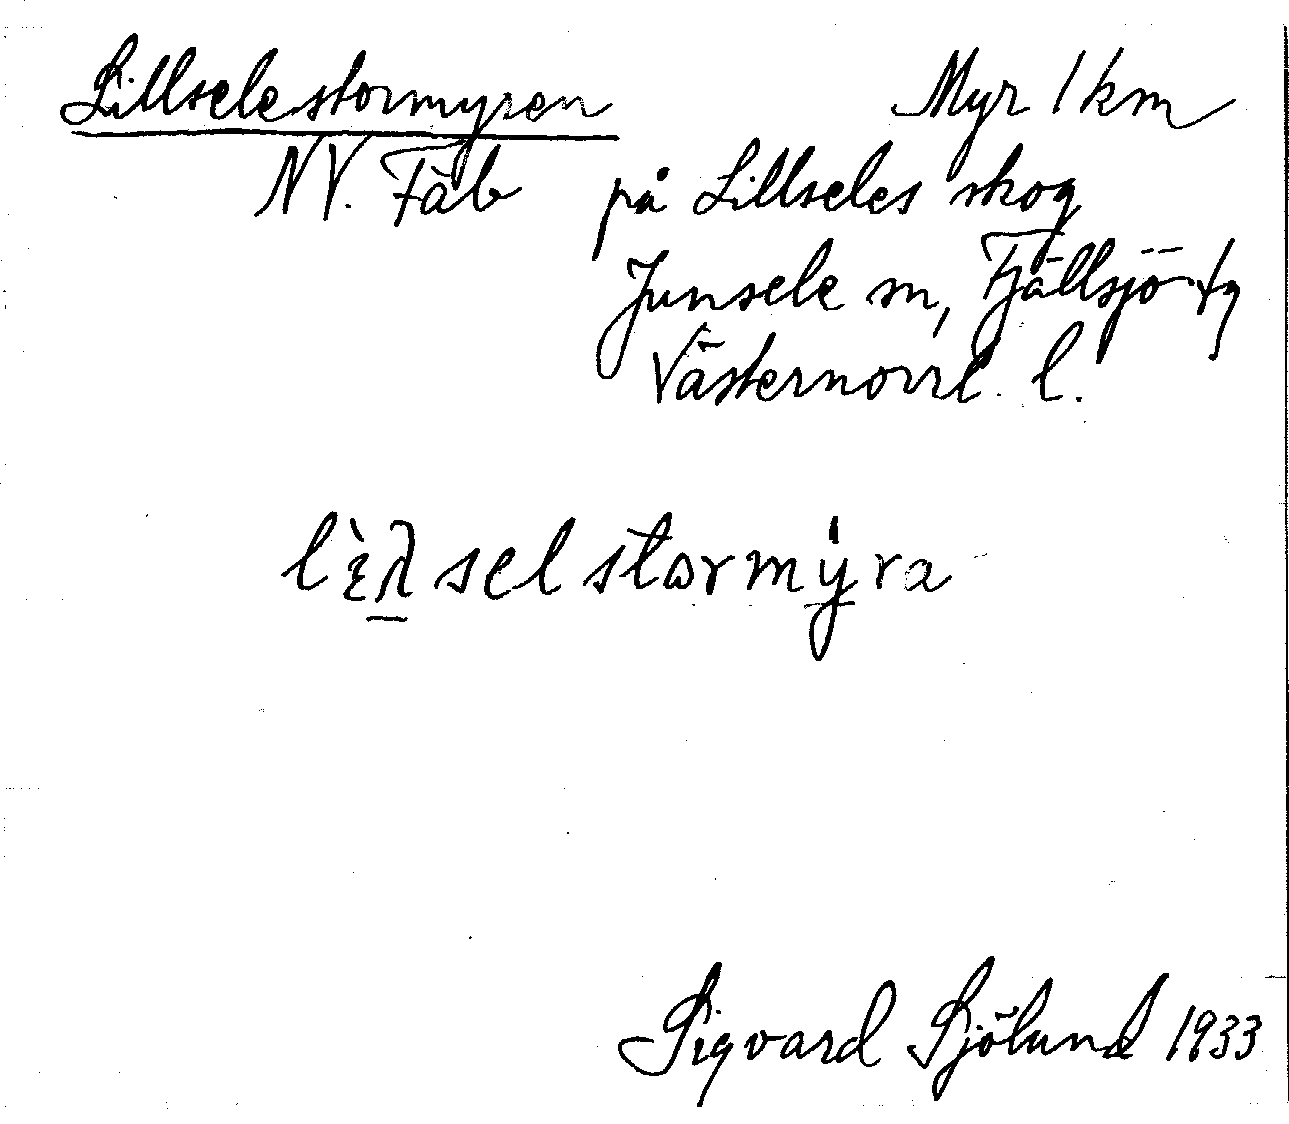 Lillselestormyren Myr 1 km
NV. Fäb på Lillseles skog
Junsele sn, Fjällsjö tg
Västernorrl. l.
lὲλselstɷrmýra
Sigvard Sjölund 1933